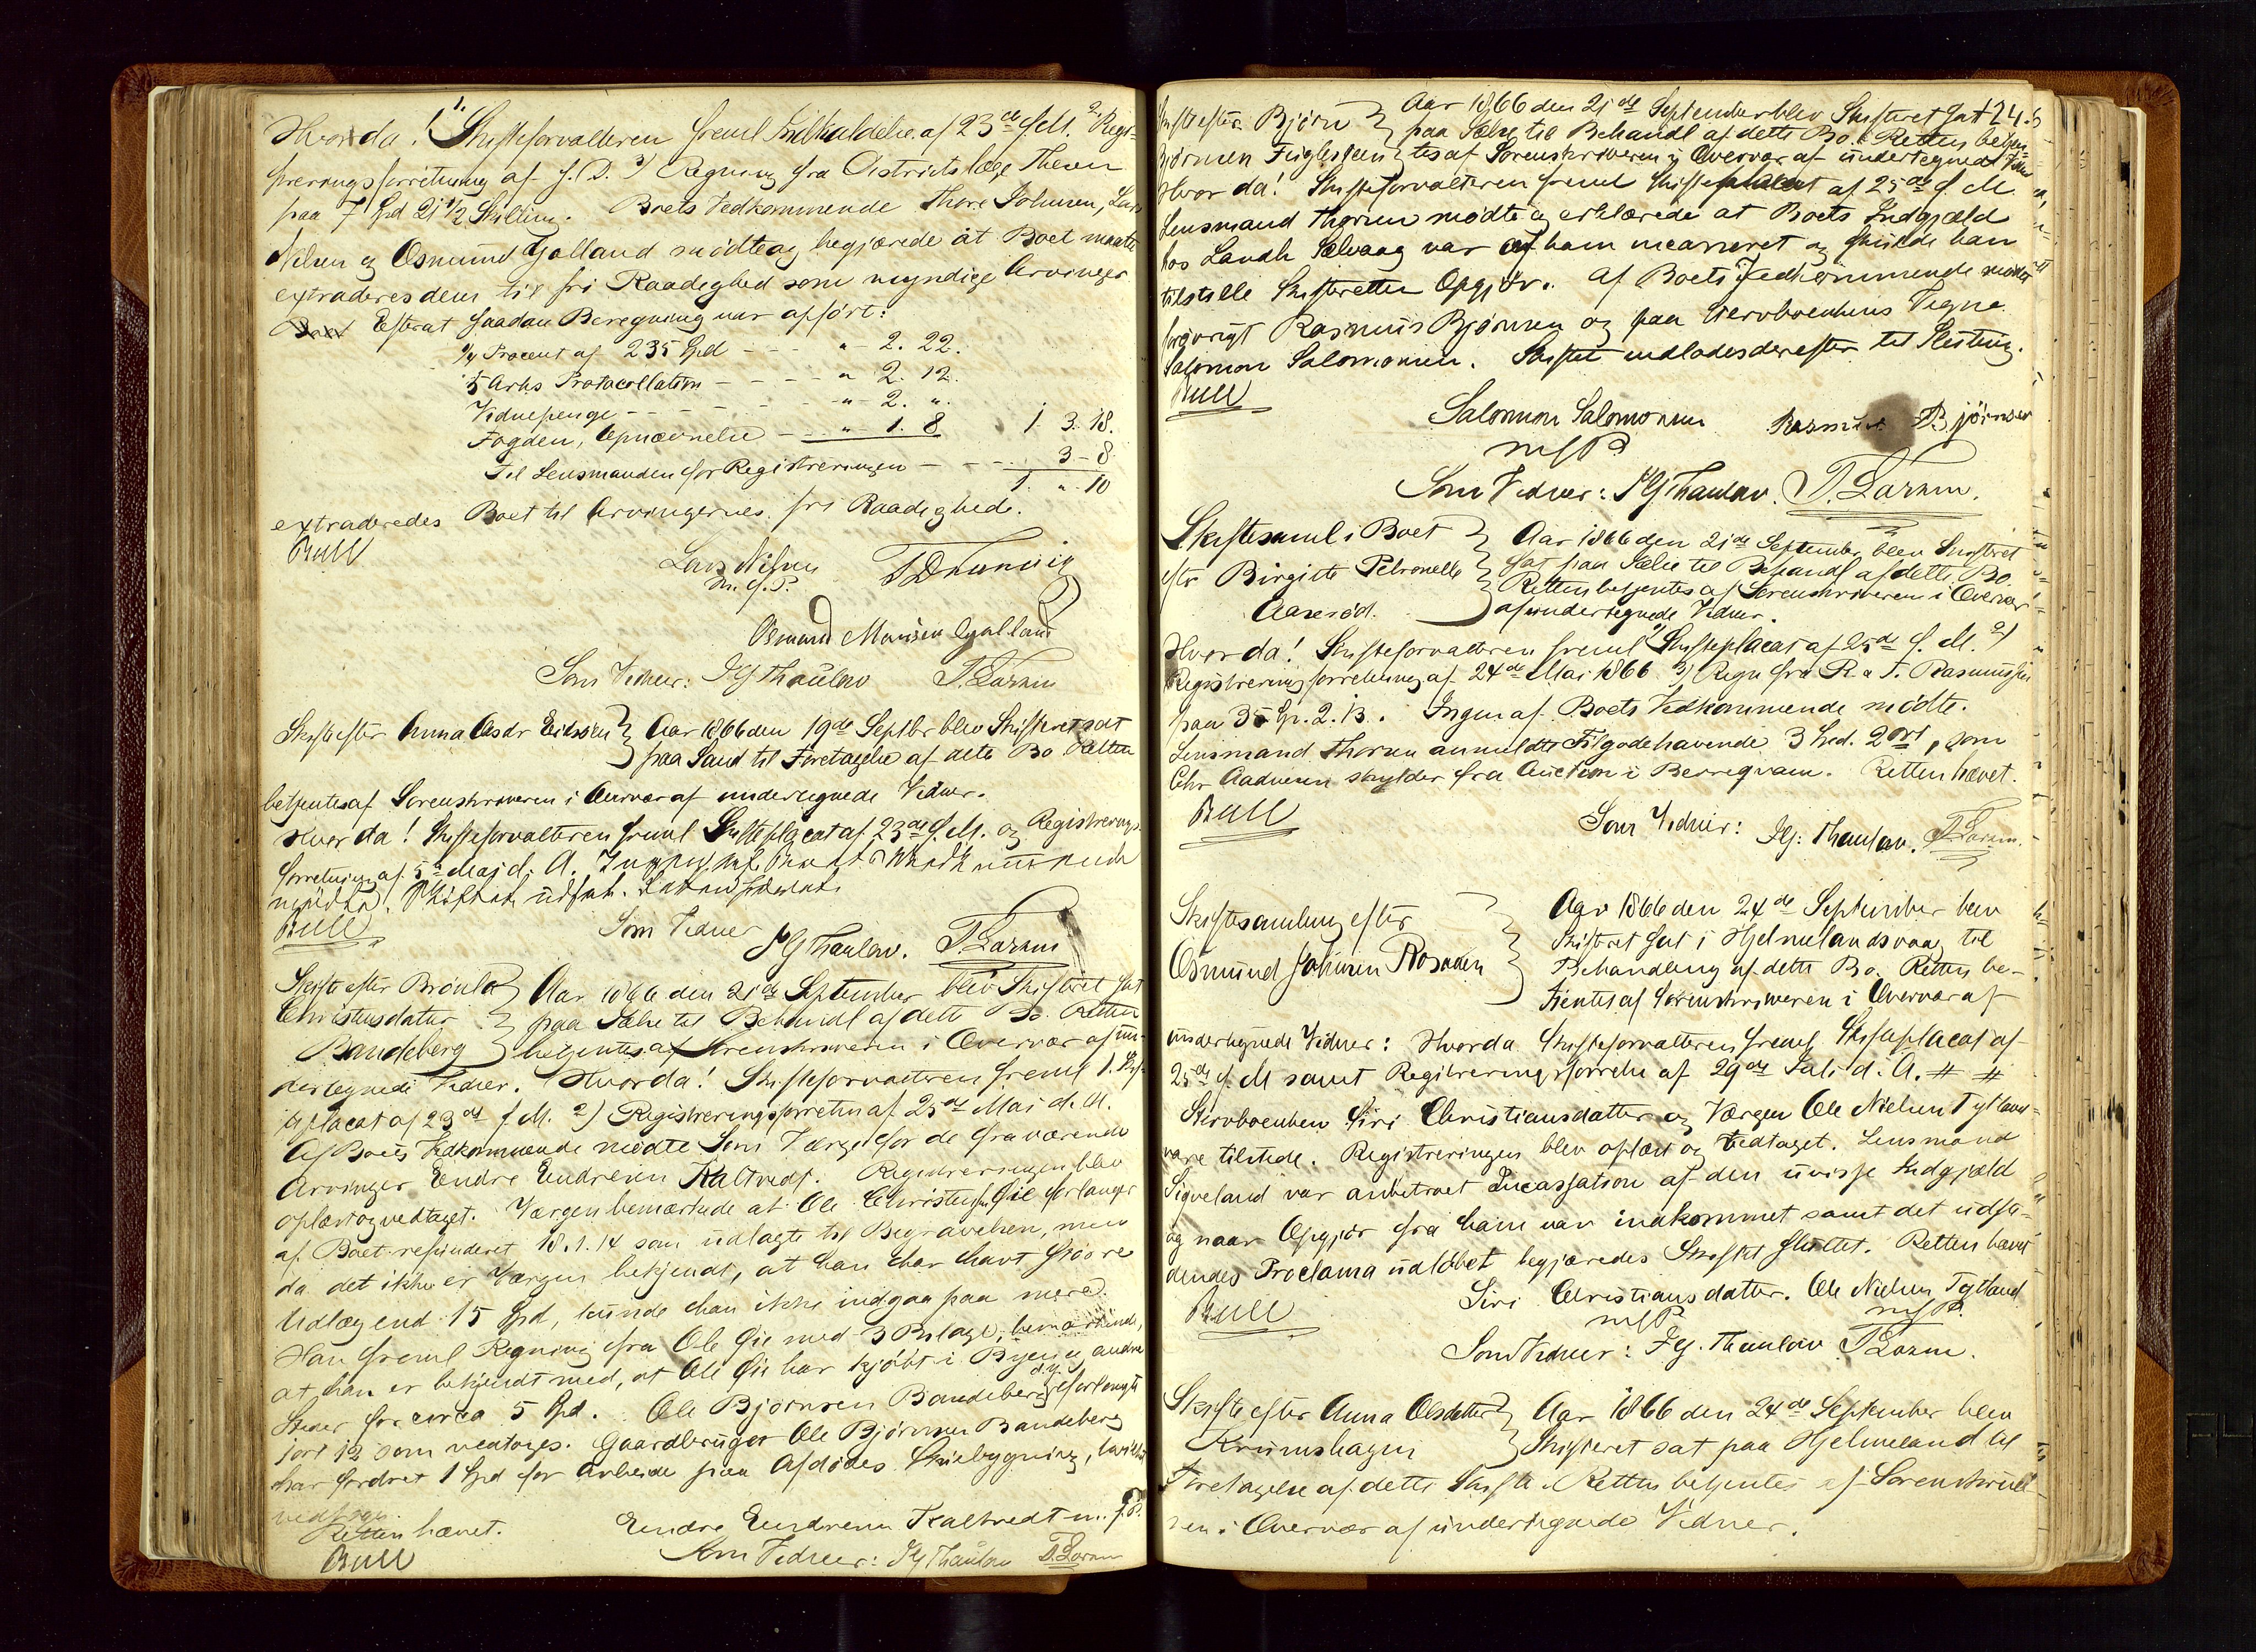 Hvorda! 1. Skifteforvalteren freml Indkaldelse af 23de f. M. 2 Regi-
streringsforretning af s. D. 3) Regning fra Districtslæge Theen
paa 7 Spd 21 1/2 Skilling. Boets Vedkommende Thore Johnsen, Lars
Nilsen og Osmund Gjalland mødte og begjærede at Boet maatte
extraderes dem til fri Raadighed som myndige Arvinger
Efterat saadan Beregning var afført:
1/4 Procent af 235 Spd - - " - 2. 22.
5 Arks Protocollation - - - - " 2. 12.
Vidnepenge - - - - - - " - 2. ".
Fogden, Opnævnelse - - " - 1. 8 1. 3. 18.
Til Lensmanden for Registreringen - - - 3 - 8
1. " 10
extraderedes Boet til Arvingernes fri Raadighed.
Bull
Lars Nilsen
m. f. P.
Osmund Monsen Gjalland
Som Vidner: J G Thaulow T. Larsen
Skifte efter Anna Aasdr Eidsøen Aar 1866 den 19de Septbr blev Skifteret sat
paa Sand til Foretagelse af dette Bo Retten
betjentes af Sorenskriveren i Overvær af undertegnede Vidner.
Hvorda! Skifteforvalteren freml Skifteplacat af 23de f. M. og Registrerings-
forretning af 5te Maj d. A. Ingen af Boets Vedkommende
mødte. Skiftet udsat. Retten hævet.
Bull
Som Vidner J G Thaulow. T. Larsen
Skifte efter Brønla Aar 1866 den 21de September blev Skifteret sat
Christensdatter paa Sælse til Behandl af dette Bo. Retten
Bandeberg betjentes af Sorenskriveren i Overvær af un-
dertegnede Vidner. Hvorda! Skifteforvalteren freml 1. Skif-
teplacat af 23de f. M. 2) Registreringsforretn af 25de Mai d. A.
Af Boets Vedkommende mødte som Værge for de fraværende
Arvinger Endre Endresen Kaltvedt. Registreringen blev
oplæst og vedtaget. Værgen bemærkede at Ole Christensen Gie forlanger
af Boet refunderet 18. 1. 14 som udlagte til Begravelsen, men
da det ikke er Værgen bekjendt, at han har havt større
Udlæg end 15 Spd, kunde han ikke indgaa paa mere.
Han freml Regning fra Ole Gie med 3 Bilage, bemærkende,
at han er bekjendt med, at Ole Gie har kjøbt i Byen og andre
Steder for circa 5 Spd. Ole Bjørnsen Bandeberg forlangte
fort 12 som vedtoges. Gaardbruger Ole Bjørnsen Bandeberg
har fordret 1 Spd for Arbeide paa Afdødes
Retten hævet. Endre Endresen Kaltvedt m. f. P.
Bull Som Vidner: J G Thaulow T. Larsen
Skifte efter Bjørn Aar 1866 den 21de September blev Skifteret sat 246
Bjørnsen Fuglesteen paa Sælse til Behandl af dette Bo. Retten betjen-
tes af Sorenskriveren i Overvær af undertegnede Vidner
Hvor da! Skifteforvalteren freml Skifteplacat af 25de f M
Lensmand Thorsen mødte og erklærede at Boets Indgjæld
hos Landh Sælvaag var af ham incasseret og skulde han
tilstille Skifteretten Opgjør. Af Boets Vedkommende mødte
forøvrigt Rasmus Bjørnsen og paa Stervboenkens Vegne
Salomon Salomonsen. Skiftet indlodes derefter til Slutning.
Bull
Salomon Salomonsen Rasmus Bjørnsen
m f P.
Som Vidner: J G Thaulow. T. Larsen.
Skiftesaml i Boet Aar 1866 den 21de September blev Skifteret
eftr Birgitte Petronelle sat paa Sælse til Behandl af dette Bo.
Aaserød. Retten betjentes af Sorenskriveren i Overvær
af undertegnede Vidner.
Hvor da! Skifteforvalteren freml 1) Skifteplacat af 25de f. M. 2)
Registreringsforretning af 24de Mai 1866 3) Regn fra R. & T. Rasmussen
paa 35 Sp. 2. 13. Ingen af Boets Vedkommende mødte.
Lensmand Thorsen anmeldte Tilgodehavende 3 Spd. 2 ort, som
Chr Aadnesen skylder fra Auction i Berregvam. Retten hævet.
Bull
Som Vidner: J G: Thaulow. T. Larsen.
Skiftesamling efter Aar 1866 den 24de September blev
Osmund Johnsen Rosaasen Skifteret sat i Hjelmelandsvaag til
Behandling af dette Bo. Retten be-
tientes af Sorenskriveren i Overvær af
undertegnede Vidner: Hvorda Skifteforvalteren freml Skifteplacat af
25de f. M samt Registreringsforretn af 29de Juli d. A. # #
Stervboenken Siri Christiansdatter og Værgen Ole Nielsen Tytland
vare tilstede. Registreringen blev oplæst og vedtaget. Lensmand
Sigveland var anbetroet Incassation af den uvisse Indgjæld
og naar Opgjør fra ham var indkommet samt det udstæ-
dendes Proclama udløbet begjæredes Skiftet sluttet. Retten hævet
Bull Siri Christiansdatter. Ole Nielsen Tytland
m f P. m f P.
Som Vidner: J G. Thaulow T Larsen.
Skifte efter Anna Olsdatter Aar 1866 den 24de September blev
Krumshagen Skifteret sat paa Hjelmeland til
Foretagelse af dette Skifte. Retten betjentes af Sorenskrive-
ren i Overvær af undertegnede Vidner.